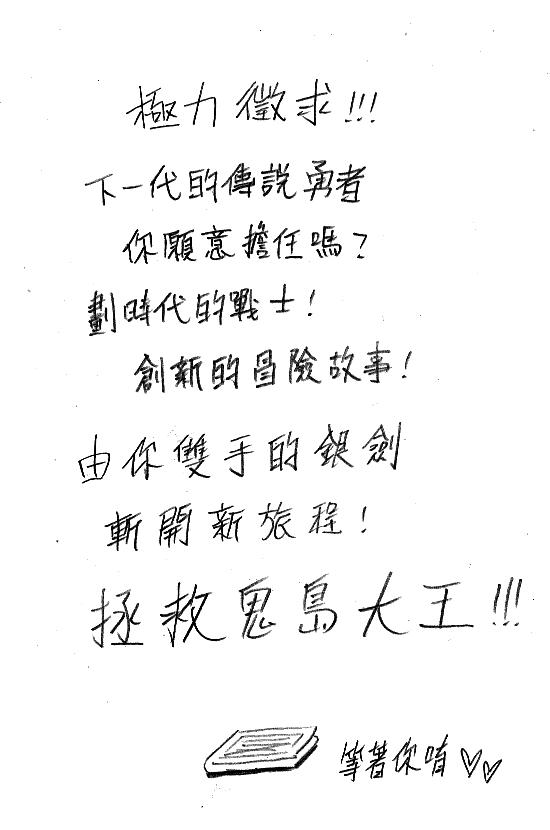 極力徵求!!!
下一代的傳說勇者
你願意擔任嗎?
劃時代的戰士!
創新的冒險故事!
由你雙手的銀劍
斬開新旅程!
拯救鬼島大王!!!
等著你唷♡♡